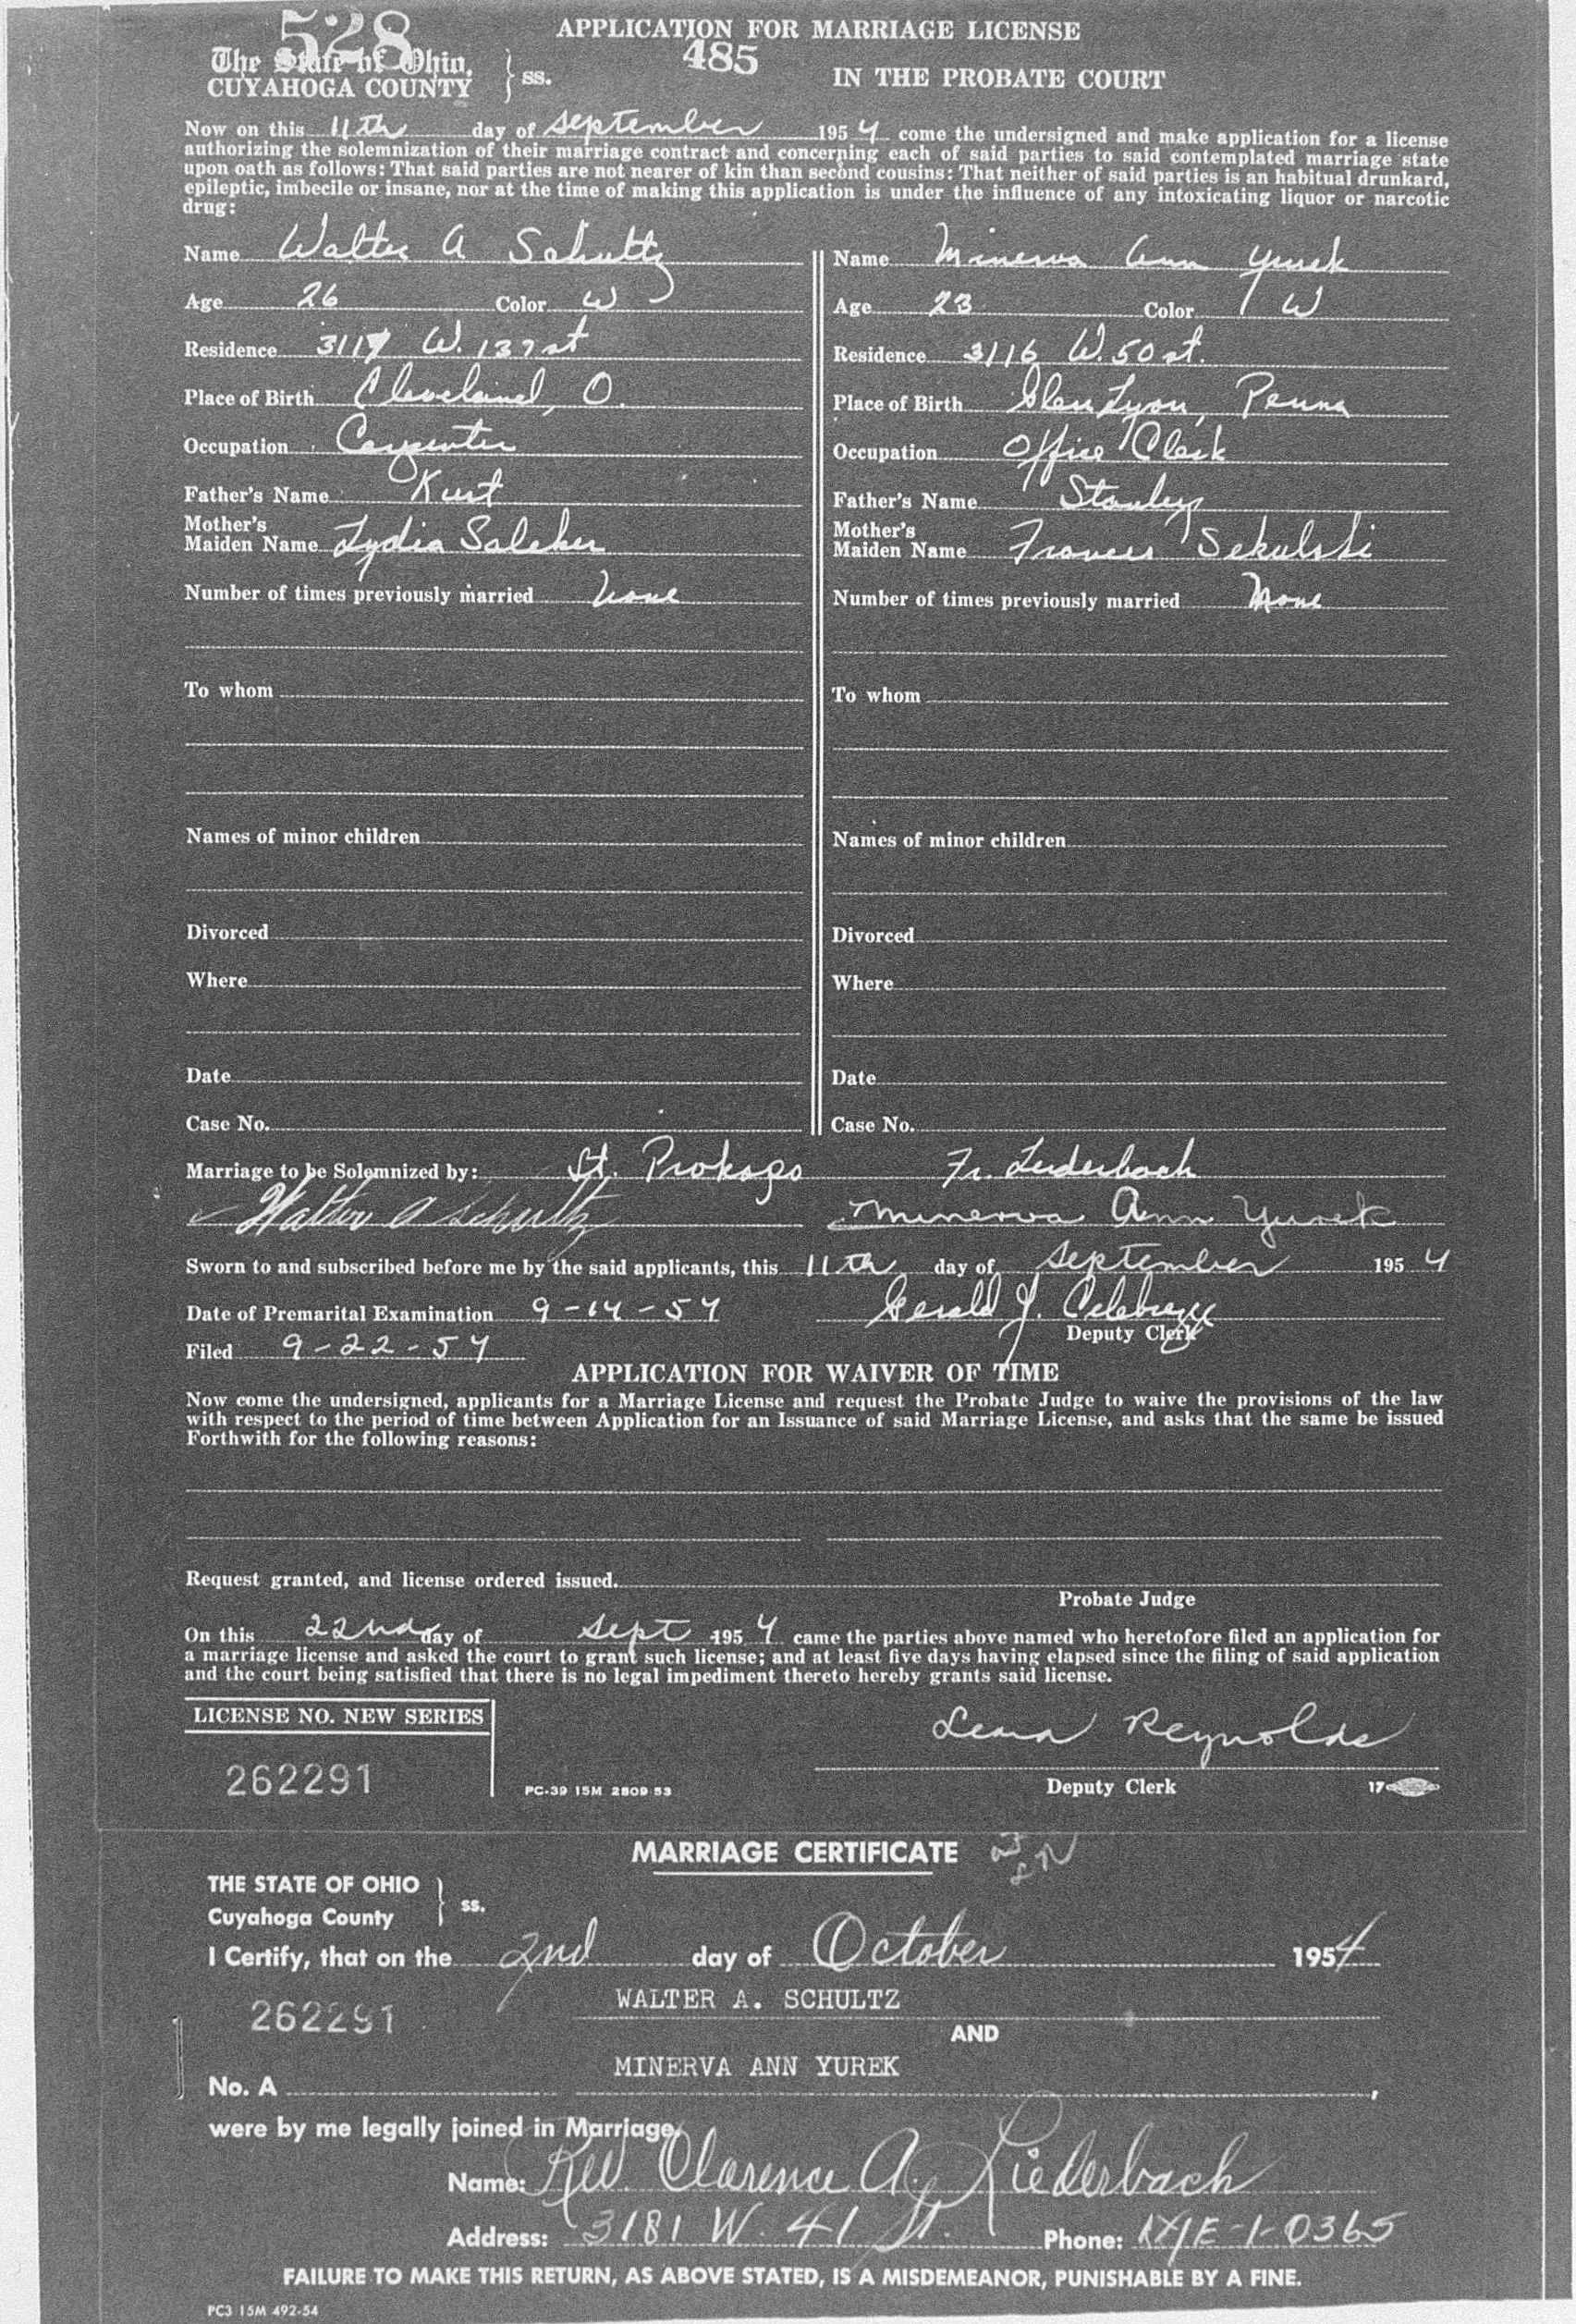 528
APPLICATION FOR MARRIAGE LICENSE
485
The State of Ohio,
CUYAHOGA COUNTY } ss.
IN THE PROBATE COURT
Now on this 11th day of September 1954 come the undersigned and make application for a license
authorizing the solemnization of their marriage contract and concerning each of said parties to said contemplated marriage state
upon oath as follows: That said parties are not nearer of kin than second cousins: That neither of said parties is an habitual drunkard,
epileptic, imbecile or insane, nor at the time of making this application is under the influence of any intoxicating liquor or narcotic
drug:
Name Walter A Schultz
Age 26 Color W
Residence 3117 W. 137 st
Place of Birth Cleveland, O.
Occupation Carpenter
Father's Name Kurt
Mother's
Maiden Name Lydia Salcher
Number of times previously married None
To whom
Names of minor children
Divorced
Where
Date
Case No.
Name Minerva Ann Yurek
Age 23 Color W
Residence 3116 W. 50 st.
Place of Birth Glen Lyon, Penna
Occupation Office Clerk
Father's Name Stanley
Mother's
Maiden Name Frances Sekulski
Number of times previously married None
To whom
Names of minor children
Divorced
Where
Date
Case No.
Marriage to be Solemnized by: St. Prokops Fr. Liederbach
Walter A Schultz Minerva Ann Yurek
Sworn to and subscribed before me by the said applicants, this 11th day of September 1954
Date of Premarital Examination 9-14-54 Gerald J. Celebrezze
Deputy Clerk
Filed 9-22-54
APPLICATION FOR WAIVER OF TIME
Now come the undersigned, applicants for a Marriage License and request the Probate Judge to waive the provisions of the law
with respect to the period of time between Application for an Issuance of said Marriage License, and asks that the same be issued
Forthwith for the following reasons:
Request granted, and license ordered issued.
Probate Judge
On this 22nd day of Sept 1954 came the parties above named who heretofore filed an application for
a marriage license and asked the court to grant such license; and at least five days having elapsed since the filing of said application
and the court being satisfied that there is no legal impediment thereto hereby grants said license.
LICENSE NO. NEW SERIES
262291
PC-39 15M 2809 53
Lena Reynolds
Deputy Clerk
17
MARRIAGE CERTIFICATE
THE STATE OF OHIO
Cuyahoga County } ss.
I Certify, that on the 2nd day of October 1954
262291 WALTER A. SCHULTZ
AND
MINERVA ANN YUREK
No. A ,
were by me legally joined in Marriage.
Name: Rev. Clarence A. Liederbach
Address: 3181 W. 41 St. Phone: ME-1-0365
FAILURE TO MAKE THIS RETURN, AS ABOVE STATED, IS A MISDEMEANOR, PUNISHABLE BY A FINE.
PC3 15M 492-54